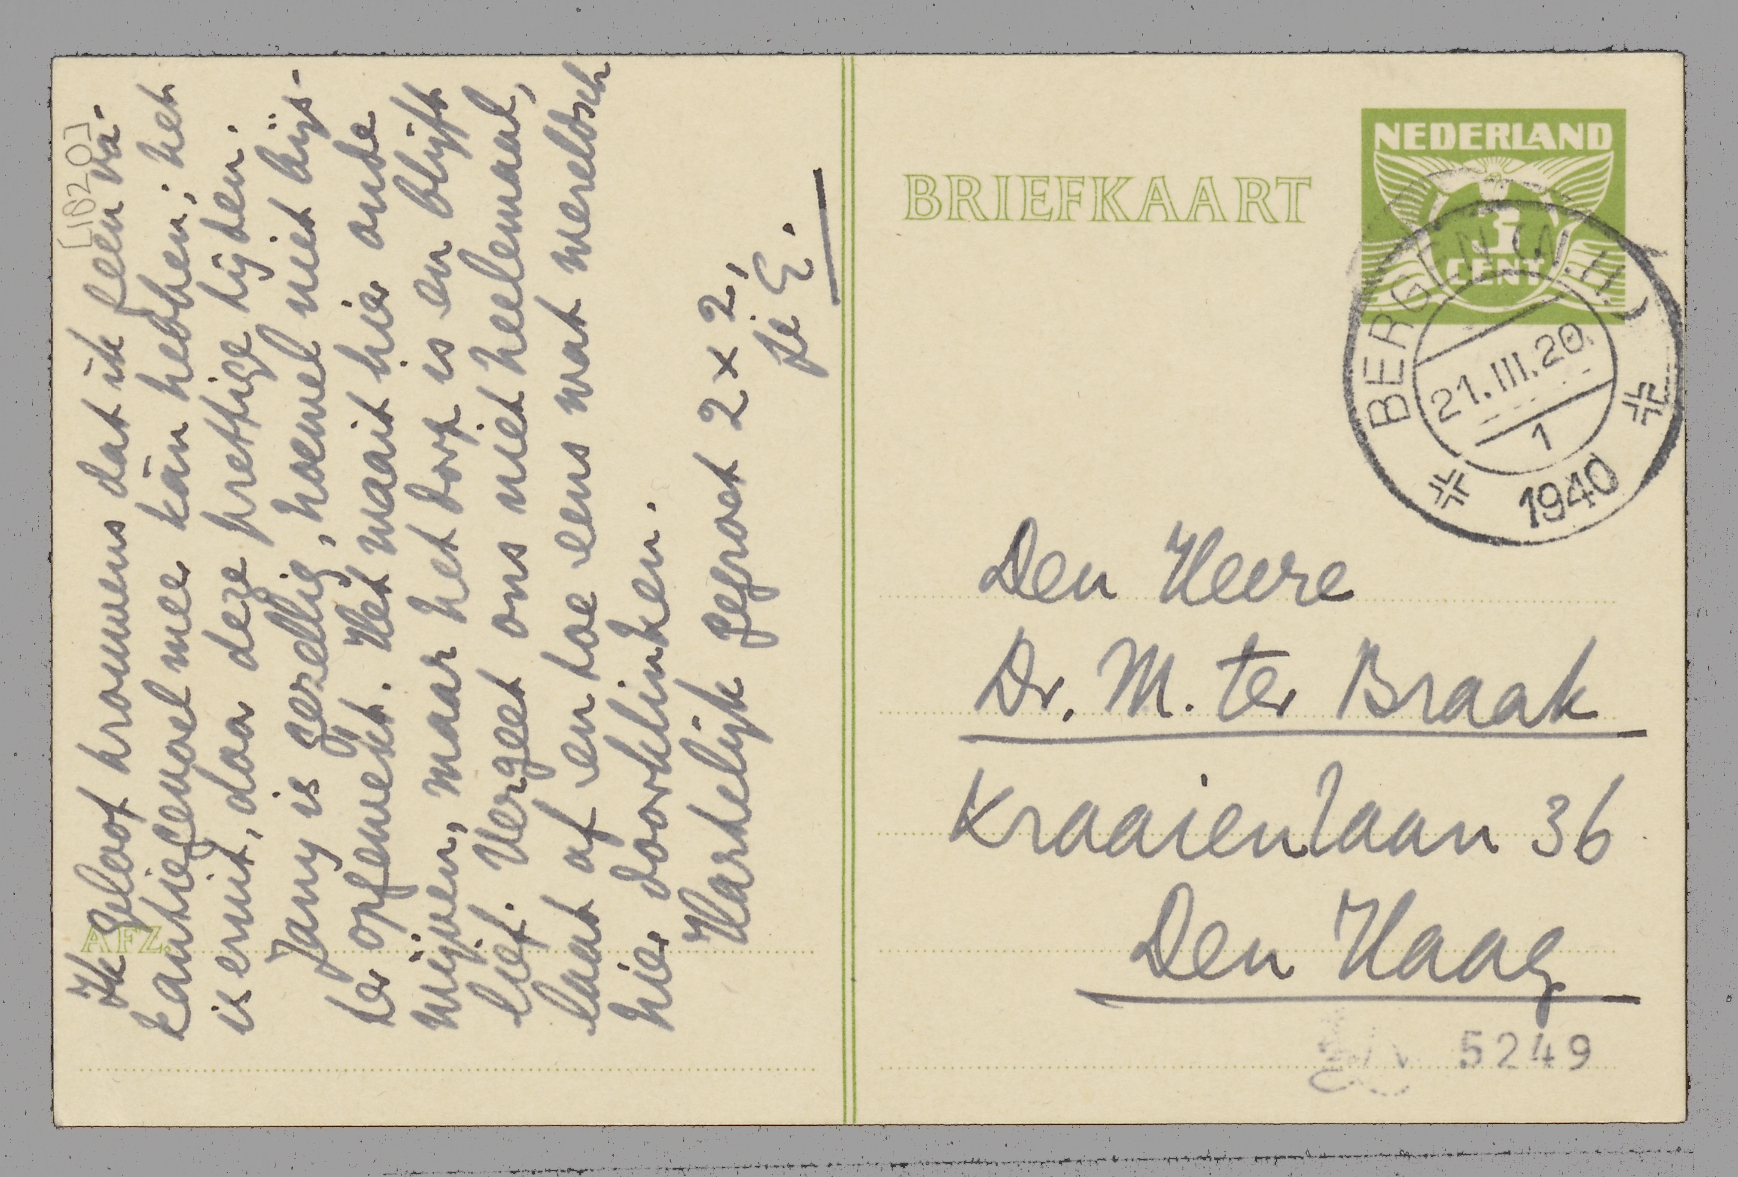 [1820]
Ik geloof trouwens dat ik geen va-
cantiegevoel mee kàn hebben; het
is eruit, door deze prettige tijden.
Jany is gezellig, hoewel niet bijs-
ter opgewekt. Het waait hier oude
wijven, maar het dorp is en blijft
lief. Vergeet ons niet heelemaal,
laat af en toe eens wat wereldsch
hier doorklinken.
Hartelijk gegroet 2 x 2,
je E.
AFZ.
BRIEFKAART
NEDERLAND
CENT
BERGEN (N.H.)
21.III.20
1
1940
Den Heere
Dr. M. ter Braak
Kraaienlaan 36
Den Haag
5249